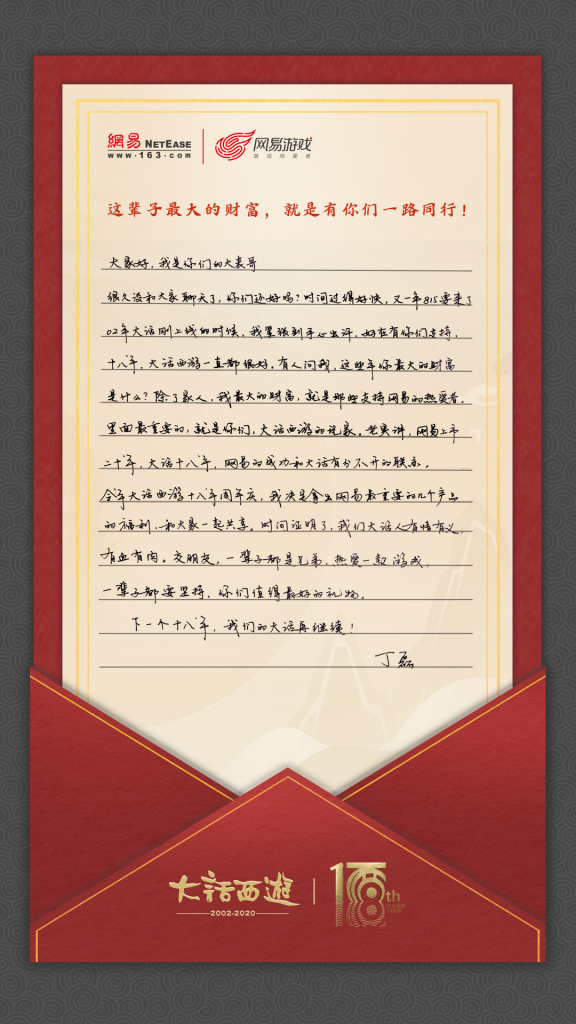 網易 NETEASE
www.163.com
网易游戏
游戏热爱者
这辈子最大的财富，就是有你们一路同行！
大家好，我是你们的大表哥
很久没和大家聊天了，你们还好吗？时间过得好快，又一年815要来了
02年大话刚上线的时候，我紧张到手心出汗，好在有你们支持，
十八年，大话西游一直都很好。有人问我，这些年你最大的财富
是什么？除了家人，我最大的财富，就是那些支持网易的热爱者，
里面最重要的，就是你们，大话西游的玩家。老实讲，网易上市
二十年，大话十八年，网易的成功和大话有分不开的联系。
今年大话西游十八年周年庆，我决定拿出网易最重要的几个产品
的福利，和大家一起共享。时间证明了，我们大话人有情有义，
有血有肉。交朋友，一辈子都是兄弟，热爱一款游戏，
一辈子都要坚持，你们值得最好的礼物。
下一个十八年，我们的大话再继续！
丁磊
大话西遊
2002-2020
18th